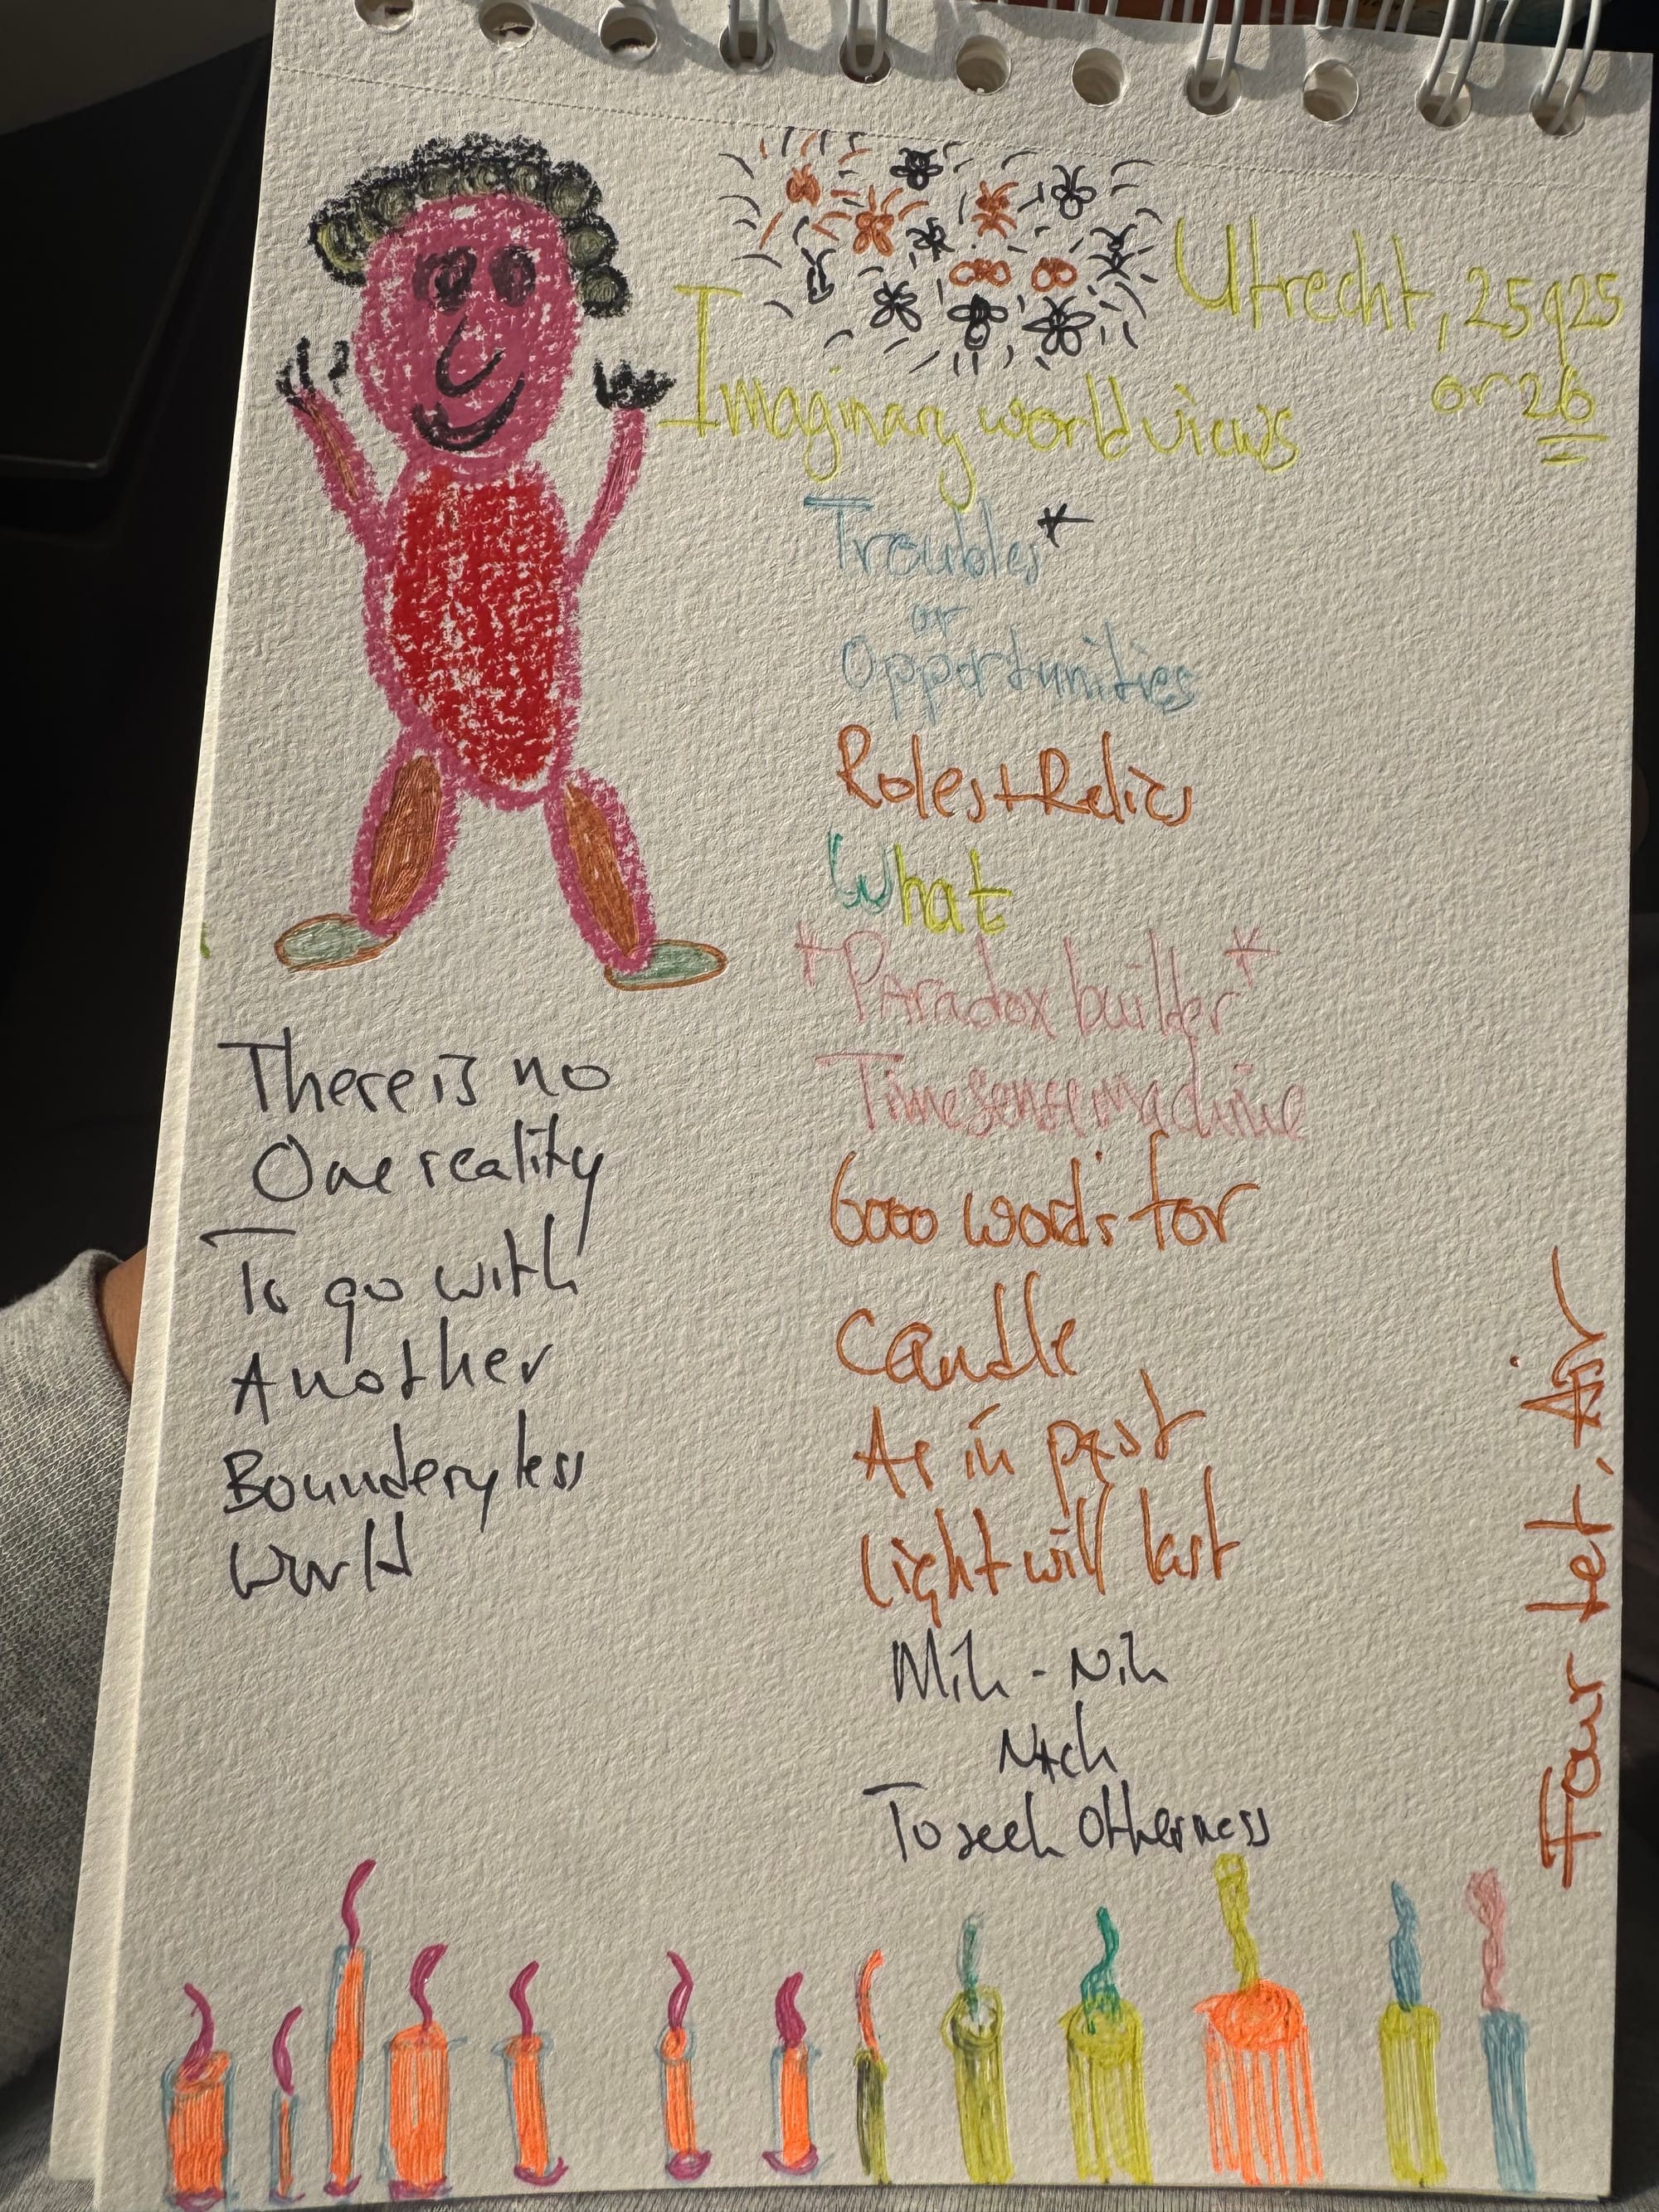 Utrecht, 25 9 25
or 26
Imaginary worldviews
Troubles*
or
Opportunities
Roles + Relics
What
*Paradox builder*
Time sense machine
6000 words for
Candle
As in past
Light will last
There is no
One reality
To go with
Another
Bounderyless
World
To seek Otherness
Four tet. Air